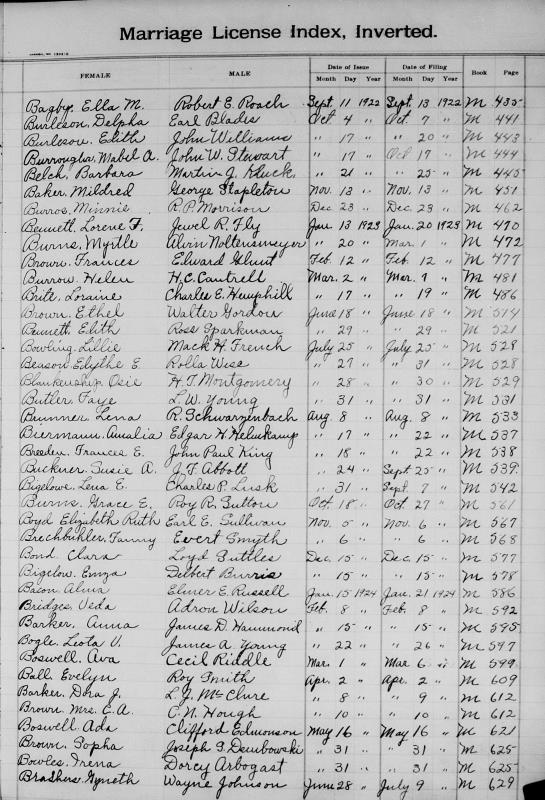 Marriage License Index, Inverted.
FEMALE MALE Date of Issue Date of Filing Book Page
Month Day Year Month Day Year
Bagby, Ella M. Robert E. Roach Sept. 11 1922 Sept. 13 1922 M 435
Burleson, Delpha Earl Blades Oct 4 " Oct 7 " M 441
Burleson, Edith John Williams " 17 " " 20 " M 443
Burroughs, Mabel A. John W. Stewart " 17 " Oct 17 " M 444
Belch, Barbara Martin J. Kluck " 21 " " 25 " M 445
Baker, Mildred George Stapleton Nov. 13 " Nov. 13 " M 451
Burros, Minnie R. P. Morrison Dec 23 " Dec 23 " M 462
Bennett, Lorene F. Jewel R. Fly Jan. 13 1923 Jan. 20 1923 M 470
Burns, Myrtle Alvin Noltensmeyer " 20 " Mar. 1 " M 472
Brown, Frances Edward Ghent Feb. 12 " Feb. 12 " M 477
Burrow, Helen H. C. Cantrell Mar. 2 " Mar. 7 " M 481
Brite, Loraine Charles E. Hemphill " 17 " " 19 " M 486
Brown, Ethel Walter Gordon June 18 " June 18 " M 514
Bennett, Edith Ross Sparkman " 29 " " 29 " M 521
Bowling, Lillie Mack H. French July 25 " July 25 " M 528
Beason, Edythe E. Rolla Wise " 27 " " 31 " M 528
Blankenship, Osie H. T. Montgomery " 28 " " 30 " M 529
Butler, Faye L. W. Young " 31 " " 31 " M 531
Brunner, Lena R. Schwarzenbach Aug. 8 " Aug. 8 " M 533
Biermann, Amalia Edgar H. Helmkamp " 17 " " 22 " M 537
Breeden, Frances E. John Paul King " 18 " " 22 " M 538
Buckner, Susie A. J. F. Abbott " 24 " Sept 25 " M 539
Bigelow, Lena E. Charles P. Lusk " 31 " Sept. 7 " M 542
Burns, Grace E. Roy R. Sutton Oct. 18 " Oct. 27 " M 561
Boyd Elizabeth Ruth Earl E. Sullivan Nov. 5 " Nov. 6 " M 567
Brechbuhler, Fanny Evert Smyth " 6 " " 6 " M 568
Bond, Clara Loyd Suttles Dec. 15 " Dec. 15 " M 577
Bigelow, Emza Delbert Burris " 15 " " 15 " M 578
Bacon, Alma Elmer E. Russell Jan. 15 1924 Jan. 21 1924 M 586
Bridges, Veda Adron Wilson Feb. 8 " Feb. 8 " M 592
Barker, Anna James D. Hammond " 15 " " 15 " M 595
Bogle, Leota V. James A. Young " 22 " " 26 " M 597
Boswell, Ava Cecil Riddle Mar. 1 " Mar. 6 " M 599
Ball, Evelyn Roy Smith Apr. 2 " Apr. 2 " M 609
Barker, Dora J. L. J. McClure " 8 " " 9 " M 612
Brown, Mrs. E. A. C. N. Hough " 10 " " 10 " M 612
Boswell, Ada Clifford Edmonson May 16 " May 16 " M 621
Brown, Sopha Joseph S. Dembowski " 31 " " 31 " M 625
Bowles, Irena Dorcy Arbogast " 31 " " 31 " M 625
Brashers, Gyneth Wayne Johnson June 28 " July 9 " M 629